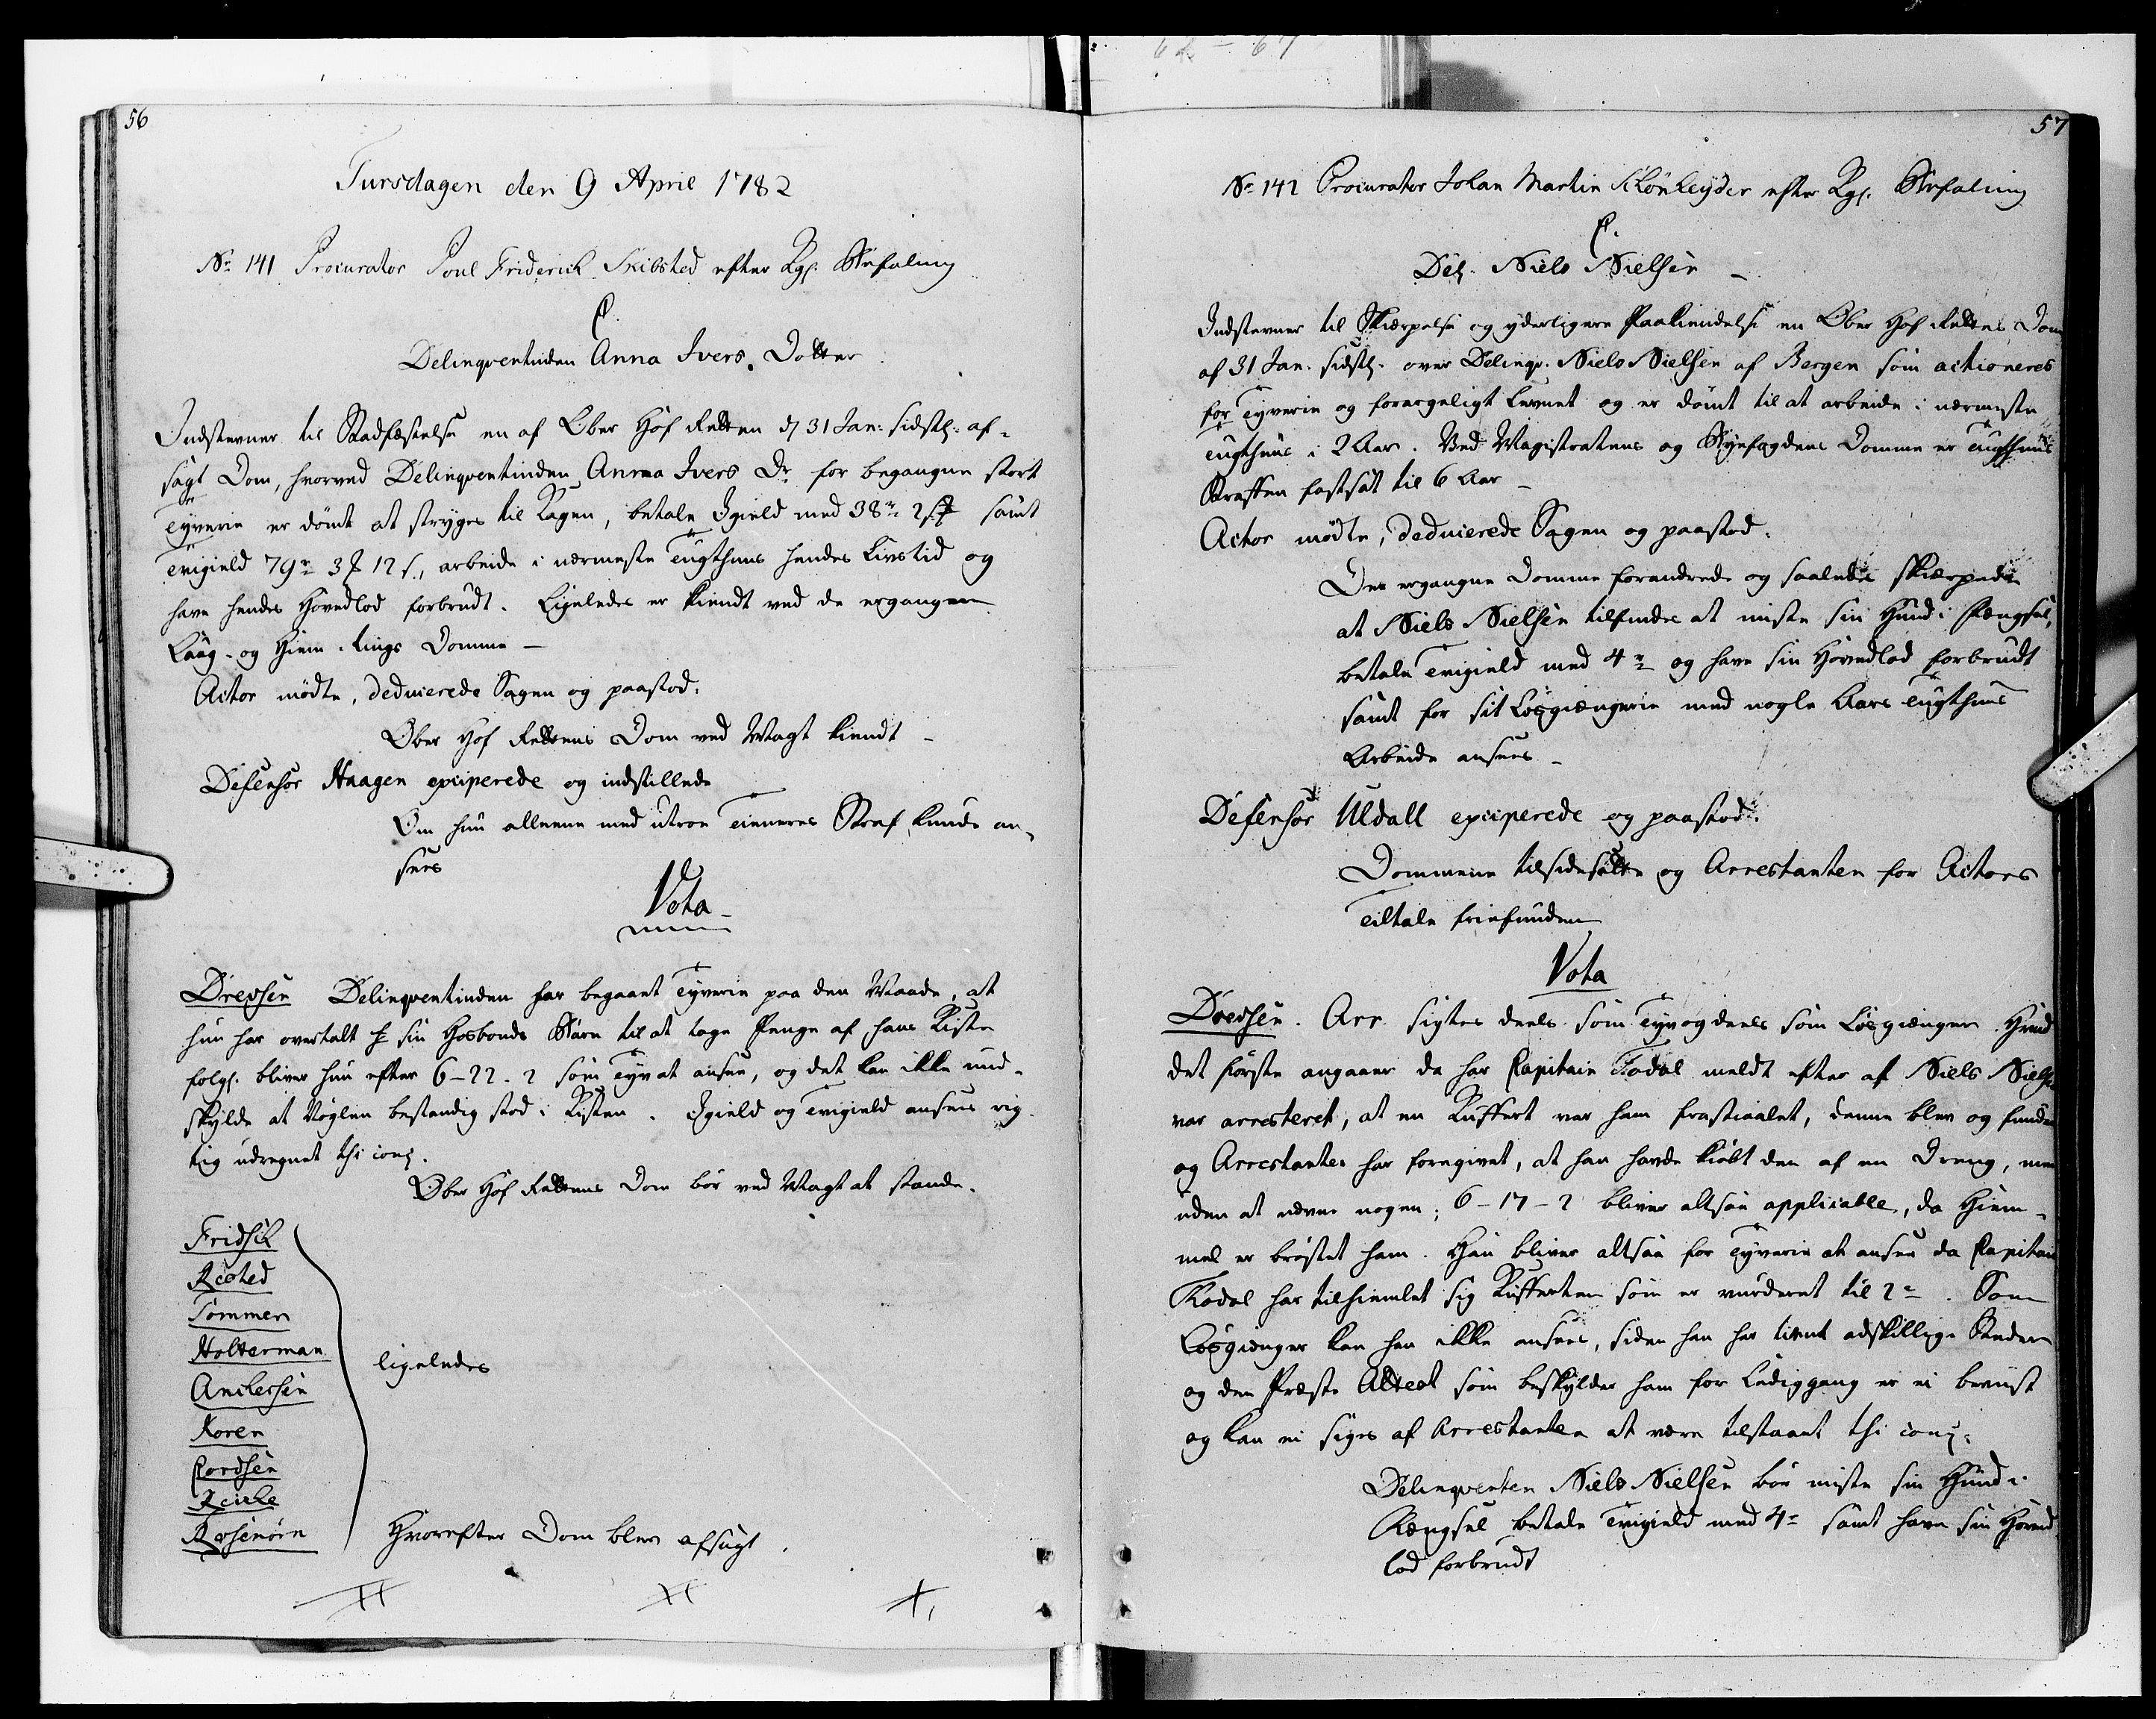 56
Tirsdagen den 9 April 1782
No 141 Procurator Poul Friderich Skibsted efter Kgl. Befaling
C.
Delinqventinden Anna Ivers Dotter
Indstevner til Stadfæstelse en af Ober Hof Retten d 31 Jan: sidstl: af-
sagt Dom, hvorved Delinqventinden Anna Ivers Dr for begangne stort
Tyverie er dömt at stryges til Kagen, betale Igield med 38 rd 2 samt
Tvigield 79 rd 3 12 s., arbeide i nærmeste Tugthuus hendes Livstid og
have hendes Hovedlod forbrudt. Ligeledes er kiendt ved de ergangne
Laug- og Hiem-tings Domme –
Actor mödte, deducerede Sagen og paastod:
Ober Hof Rettens Dom ved Magt kiendt –
Defensor Haagen exciperede og indstillede
Om hun alleene med utroe Tieneres Straf kunde an-
sees
Vota
Drevsen Delinqventinden har begaaet Tyverie paa den Maade, at
hun har overtalt sin Hosbonds Børn til at tage Penge af hans Kiste
folgl. bliver hun efter 6-22-2 som Tyv at ansee, og det kan ikke und-
skylde at Nøglen bestandig stod i Kisten. Igield og Tvigield ansees rig-
tig udregnet thi conl.
Ober Hof Rettens Dom bör ved Magt at stande.
Fridsch
Risted
Sommer
Holterman
Anchersen
Koren
Cordsen
Reiche
Rosenörn
ligeledes
Hvorefter Dom blev afsagt.
57
No 142 Procurator Johan Martin Schönheyder efter Kgl. Befaling
C.
Del. Niels Nielsen –
Indstevner til Skiærpelse og yderligere Paakiendelse en Ober Hof Rettes Dom
af 31 Jan. sidstl. over Delinqv. Niels Nielsen af Bergen som actioneres
for Tyverie og forargeligt Levnet og er dömt til at arbeide i nærmeste
Tugthuus i 2 Aar. Ved Magistratens og Byefogdens Domme er Tugthuus
Straffen fastsat til 6 Aar –
Actor mödte, deducerede Sagen og paastod:
Den ergangne Domme forandrede og saaledes skiærpede
at Niels Nielsen tilfindes at miste sin Hud i Fængsel,
betale Tvigield med 4 rd og have sin Hovedlod forbrudt
samt for sit Lösgiængerie med nogle Aars Tugthuus
Arbeide ansees –
Defensor Uldall exciperede og paastod:
Dommene tilsidesatte og Arrestanten for Actors
Tiltale friefunden
Vota
Drevsen. Arr. sigtes deels som Tyv og deels som Lösgiænger. Hvad
det förste angaaer da har Capitain Fodal meldt efter at Niels Nielsen
var arresteret, at en Kuffert var ham frastiaalet, denne blev og funden
og Arrestanten har foregivet, at han havde kiöbt den af en Dreng, men
uden at nevne nogen; 6-17-2 bliver altsaa applicable, da Hiem-
mel er bröstet ham. Han bliver altsaa for Tyverie at ansee da Capitain
Fodal har tilhiemlet sig Kufferten som er vurderet til 2 rd. Som
Lösgiænger kan han ikke ansees, siden han har tient adskillige Steder
og den Præste Attest som beskylder ham for Lediggang er ei beviist
og kan ei siges af Arrestanten at være tilstaaet thi conl:
Delinqventen Niels Nielsen bör miste sin Hud i
Fængsel betale Tvigield med 4 rd samt have sin Hoved
lod forbrudt